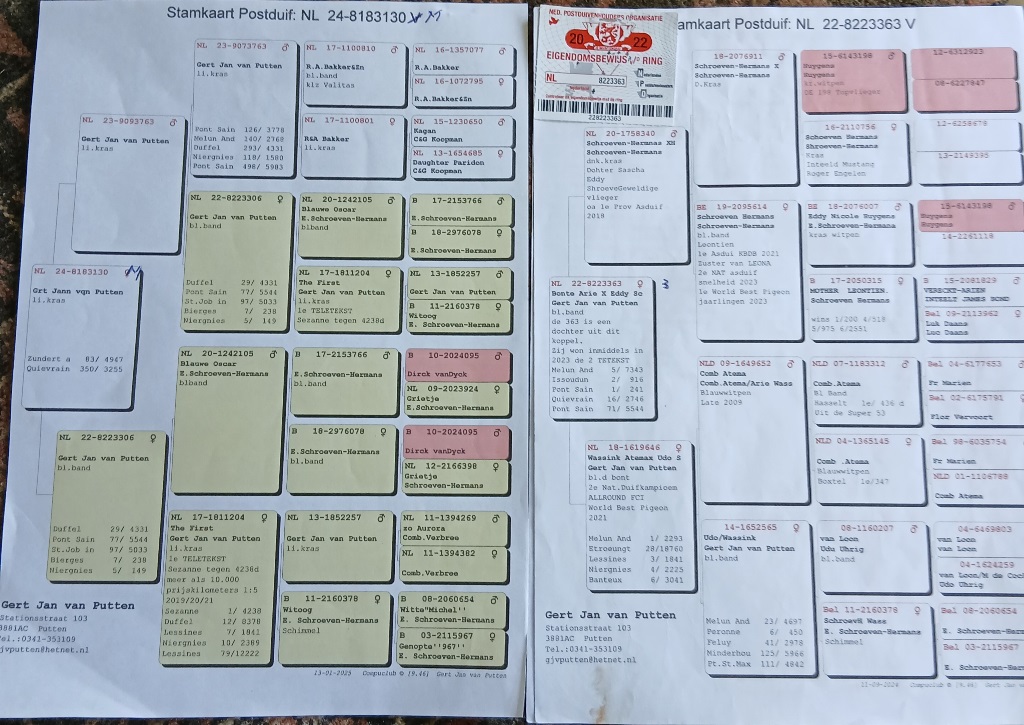 Stamkaart Postduif: NL 24-8183130 M
NL 23-9073763 ♂
Gert Jan van Putten
li.kras
Pont Sain 126/ 3778
Melun And 240/ 2768
Duffel 293/ 4331
Niergnies 118/ 1580
Pont Sain 498/ 5983
NL 17-1100810 ♂
R.A.Bakker&Zn
bl.band
klz Valitas
NL 16-1357077 ♂
R.A.Bakker
NL 16-1072795 ♀
R.A.Bakker&Zn
NL 23-9093763 ♂
Gert Jan van Putten
li.kras
NL 17-1100801 ♀
R&A Bakker
li.kras
NL 15-1230650 ♂
Kagan
C&G Koopman
NL 13-1654685 ♀
Daughter Paridon
C&G Koopman
NL 22-8223306 ♀
Gert Jan van Putten
bl.band
Duffel 29/ 4331
Pont Sain 77/ 5544
St.Job in 97/ 5033
Bierges 7/ 238
Niergnies 5/ 149
NL 20-1242105 ♂
Blauwe Oscar
E.Schroeven-Hermans
blband
B 17-2153766 ♂
E.Schroeven-Hermans
B 18-2976078 ♀
E.Schroeven-Hermans
NL 17-1811204 ♀
The First
Gert Jan van Putten
li.kras
1e TELETEKST
Sezanne tegen 4238d
NL 13-1852257 ♂
Gert Jan van Putten
B 11-2160378 ♀
Witoog
E. Schroeven-Hermans
NL 24-8183130 M
Grt Jann vqn Putten
li.kras
Zundert a 83/ 4947
Quievrain 350/ 3255
NL 20-1242105 ♂
Blauwe Oscar
E.Schroeven-Hermans
blband
B 17-2153766 ♂
E.Schroeven-Hermans
B 10-2024095 ♂
Dirck vanDyck
NL 09-2023924 ♀
Grietje
E.Schroeven-Hermans
B 18-2976078 ♀
E.Schroeven-Hermans
bl.band
B 10-2024095 ♂
Dirck vanDyck
NL 12-2166398 ♀
Grietje
Schroeven-Hermans
NL 22-8223306 ♀
Gert Jan van Putten
bl.band
Duffel 29/ 4331
Pont Sain 77/ 5544
St.Job in 97/ 5033
Bierges 7/ 238
Niergnies 5/ 149
NL 17-1811204 ♀
The First
Gert Jan van Putten
li.kras
1e TELETEKST
Sezanne tegen 4238d
meer als 10.000
prijskilometers 1:5
2019/20/21
Sezanne 1/ 4238
Duffel 12/ 8378
Lessines 7/ 1841
Niergnies 10/ 2389
Lessines 79/12222
NL 13-1852257 ♂
Gert Jan van Putten
li.kras
NL 11-1394269 ♂
zo Aurora
Comb.Verbree
NL 11-1394382 ♀
Comb.Verbree
B 11-2160378 ♀
Witoog
E. Schroeven-Hermans
Schimmel
B 08-2060654 ♂
Witte"Michel"
E. Schroeven-Hermans
B 03-2115967 ♀
Genopte"967"
E. Schroeven-Hermans
Gert Jan van Putten
Stationsstraat 103
3881AC Putten
Tel.:0341-353109
gjvputten@hetnet.nl
13-01-2025 Compuclub © [9.46] Gert Jan van Putten
NED. POSTDUIVENHOUDERS ORGANISATIE
20 22
EIGENDOMSBEWIJS V/D RING
NL 8223363
228223363
amkaart Postduif: NL 22-8223363 V
18-2076911 ♂
Schroeven-Hermans X
Schroeven-Hermans
D.Kras
15-6143198 ♂
Huygens
Huygens
kr.witpen
DE 198 Topvlieger
12-6312923
08-6227847
NL 20-1758340 ♂
Schroeven-Hermans XH
Schroeven-Hermans
dnk.kras
Dohter Sascha
Eddy
ShroeveGeweldige
vlieger
oa 1e Prov Asduif
2018
16-2110756 ♀
Schoeven Hermans
Shroeven-Hermans
Kras
Inteeld Mustang
Roger Engelen
12-6258678
13-2149395
BE 19-2095614 ♀
Schroeven Hermans
Schroeven-Hermans
bl.band
Leontien
1e Asdui KBDB 2021
Zuster van LEONA
2e NAT asduif
snelheid 2023
1e World Best Pigeon
jaarlingen 2023
BE 18-2076007 ♂
Eddy Nicole Huygens
E.Schroeven-Hermans
kras witpen
15-6143198 ♂
Huygens
Huygens
14-2261118
B 17-2050315 ♀
MOTHER LEONTIEN
Schroeven Hermans
wins 1/200 4/518
5/975 6/2551
B 15-2081829 ♂
VERECKT-ARIEN
INTEELT JAMES BOND
Bel 09-2113962 ♀
Luk Daans
Luc Daans
NL 22-8223363 ♀ 3
Bonte Arie X Eddy So
Gert Jan van Putten
bl.band
de 363 is een
dochter uit dit
koppel.
Zij won inmiddels in
2023 de 2 TETEKST
Melun And 5/ 7343
Issoudun 2/ 916
Pont Sain 1/ 241
Quievrain 16/ 2746
Pont Sain 71/ 5544
NLD 09-1649652 ♂
Comb Atema
Comb.Atema/Arie Wass
Blauwwitpen
Late 2009
NLD 07-1183312 ♂
Comb.Atema
Bl Band
Hasselt 1e/ 436 d
Uit de Super 53
Bel 04-6177653
Fr Marien
Bel 02-6175791
Flor Vervoort
NL 18-1619646 ♀
Wassink Atemax Udo S
Gert Jan van Putten
bl.d bont
2e Nat.Duifkampioem
ALLROUND FCI
World Best Pigeon
2021
Melun And 1/ 2293
Stroeungt 28/18760
Lessines 3/ 1841
Niergnies 4/ 2225
Banteux 6/ 3041
NLD 04-1365145 ♀
Comb .Atema
Blauwwitpen
Boxtel 1e/347
Bel 98-6035754
Fr Marien
NLD 01-1106788
Comb Atema
14-1652565 ♀
Udo/Wassink
Gert Jan van Putten
bl.band
Melun And 23/ 4697
Peronne 6/ 450
Feluy 41/ 2978
Minderhou 125/ 5966
Pt.St.Max 111/ 4842
08-1160207 ♂
van Loon
Udu Uhrig
bl.band
04-6469803
van Loon
van Loon
04-1624259
van Loon/M de Coc
Udo Uhrig
Bel 11-2160378 ♀
SchroevH Wass
E. Schroeven-Hermans
Schimmel
Bel 08-2060654
E. Schroeven-Herma
Bel 03-2115967
E. Schroeven-Herma
Gert Jan van Putten
Stationsstraat 103
3881AC Putten
Tel.:0341-353109
gjvputten@hetnet.nl
Compuclub © [9.46] Gert Jan van Putten